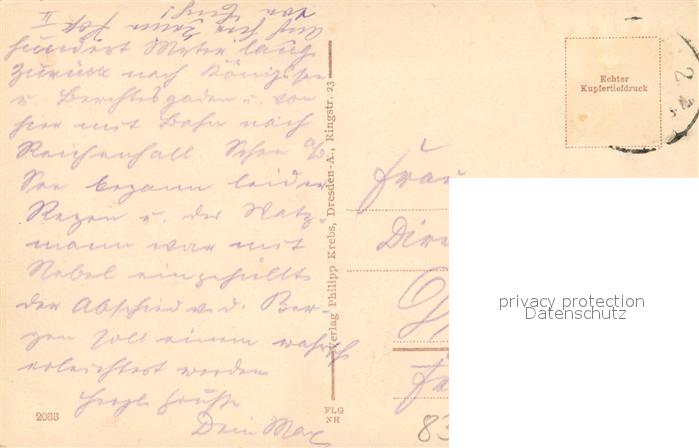 hundert Meter lang
zurück nach Königssee
u. Berchtesgaden u. von
hier mit Bahn nach
Reichenhall
See begann leider
Regen u. der Watz-
mann war mit
Nebel eingehüllt
der Abschied v. d. Ber-
gen soll einem
erleichtert werden
Herzl. Grüsse
Dein Max
2033
Verlag Philipp Krebs, Dresden-A., Ringstr. 23
FLG
NH
Echter
Kupfertiefdruck
Frau
privacy protection
Datenschutz
83